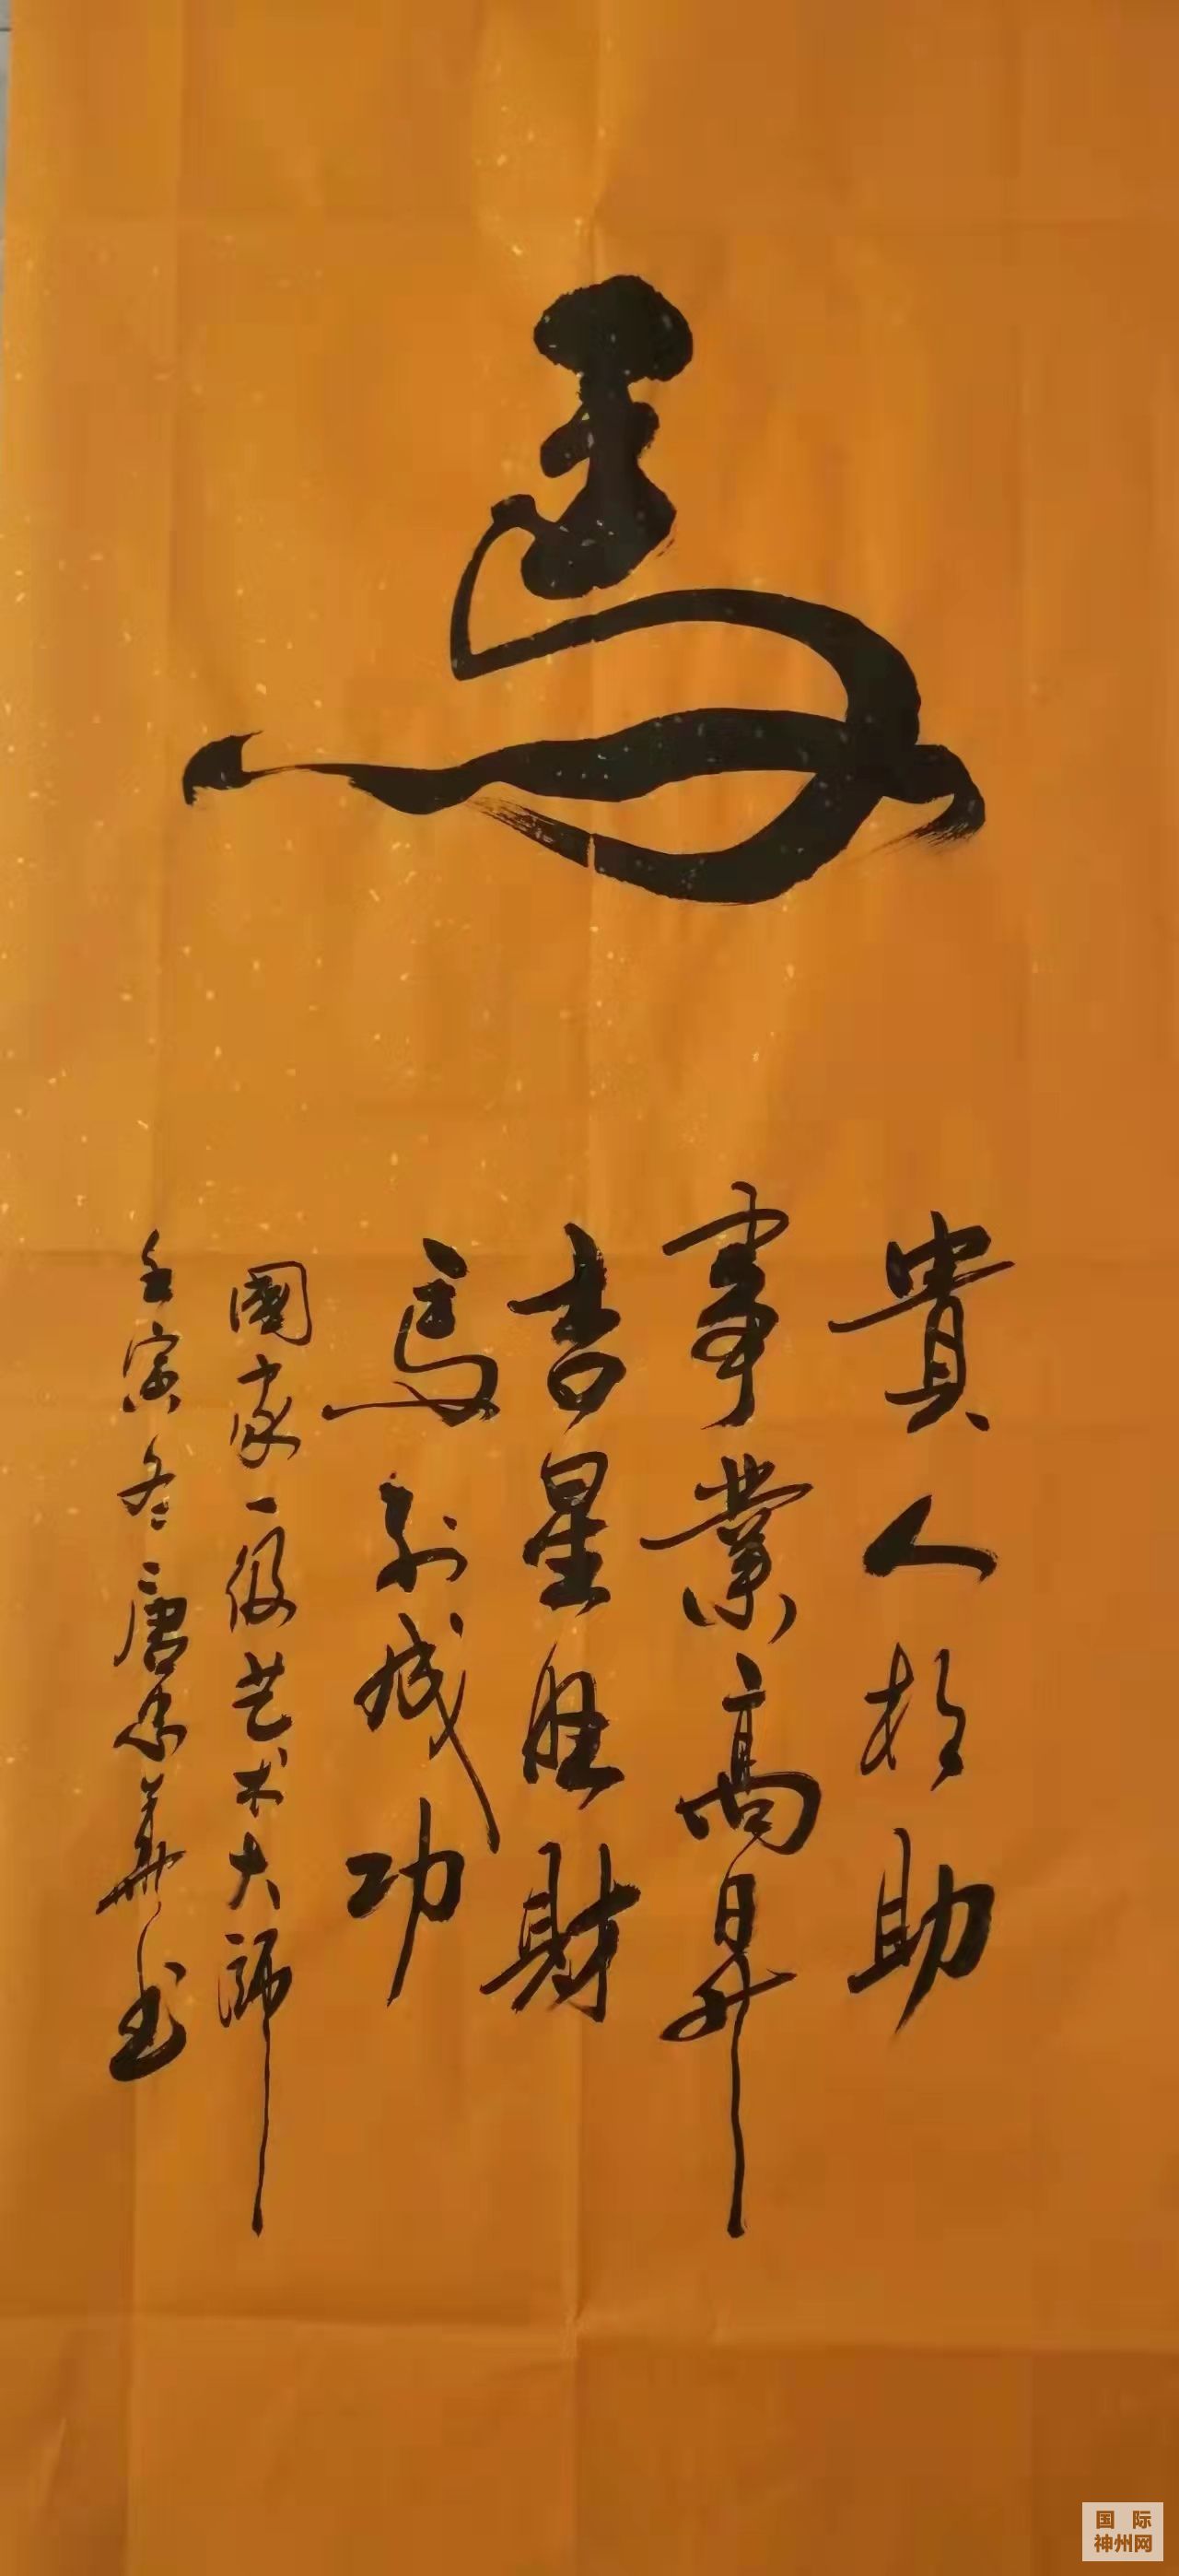 馬
貴人相助
事業高昇
吉星旺財
馬到成功
國家一级艺术大師
壬寅冬唐永華书
国际
神州网